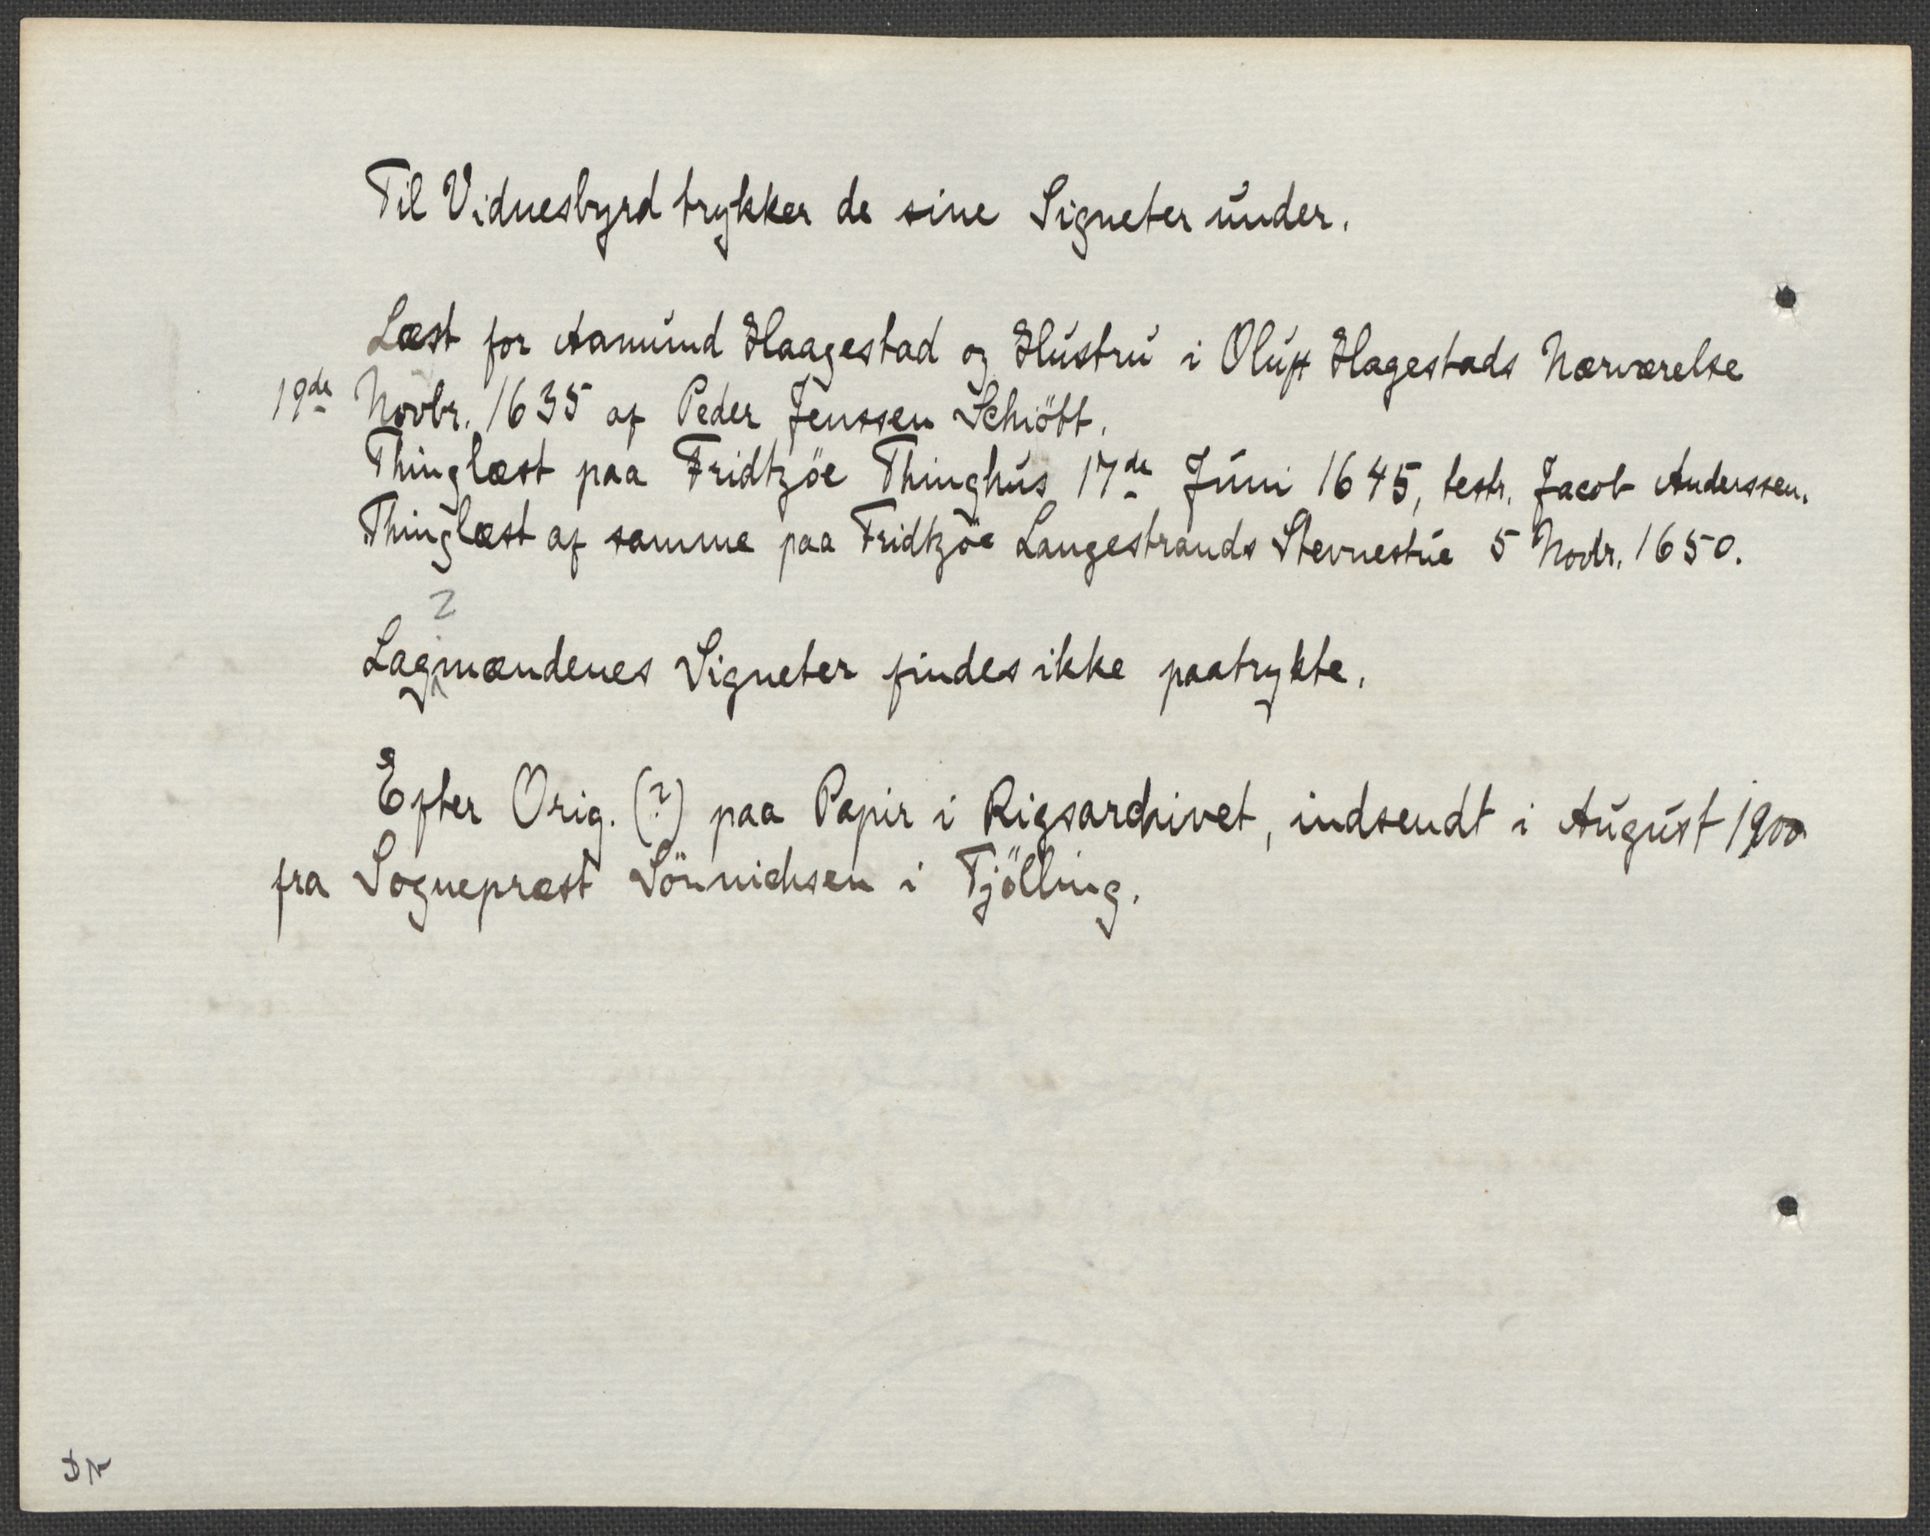 Til Vidnesbyrd trykker de sine Signeter under.
Læst for Aamund Haagestad og Hustru i Oluff Hagestads Nærværelse
19de Novbr. 1635 af Peder Jenssen Schiött.
Thinglæst paa Fridtzöe Thinghus 17de Juni 1645, testr. Jacob Anderssen.
Thinglæst af samme paa Fridtzöe Langestrands Stevnestue 5 Novbr. 1650.
2
Lagmændenes Signeter findes ikke paatrykte.
Efter Orig. (?) paa Papir i Rigsarchivet, indsendt i August 1900
fra Sognepræst Sönnichsen i Tjölling.